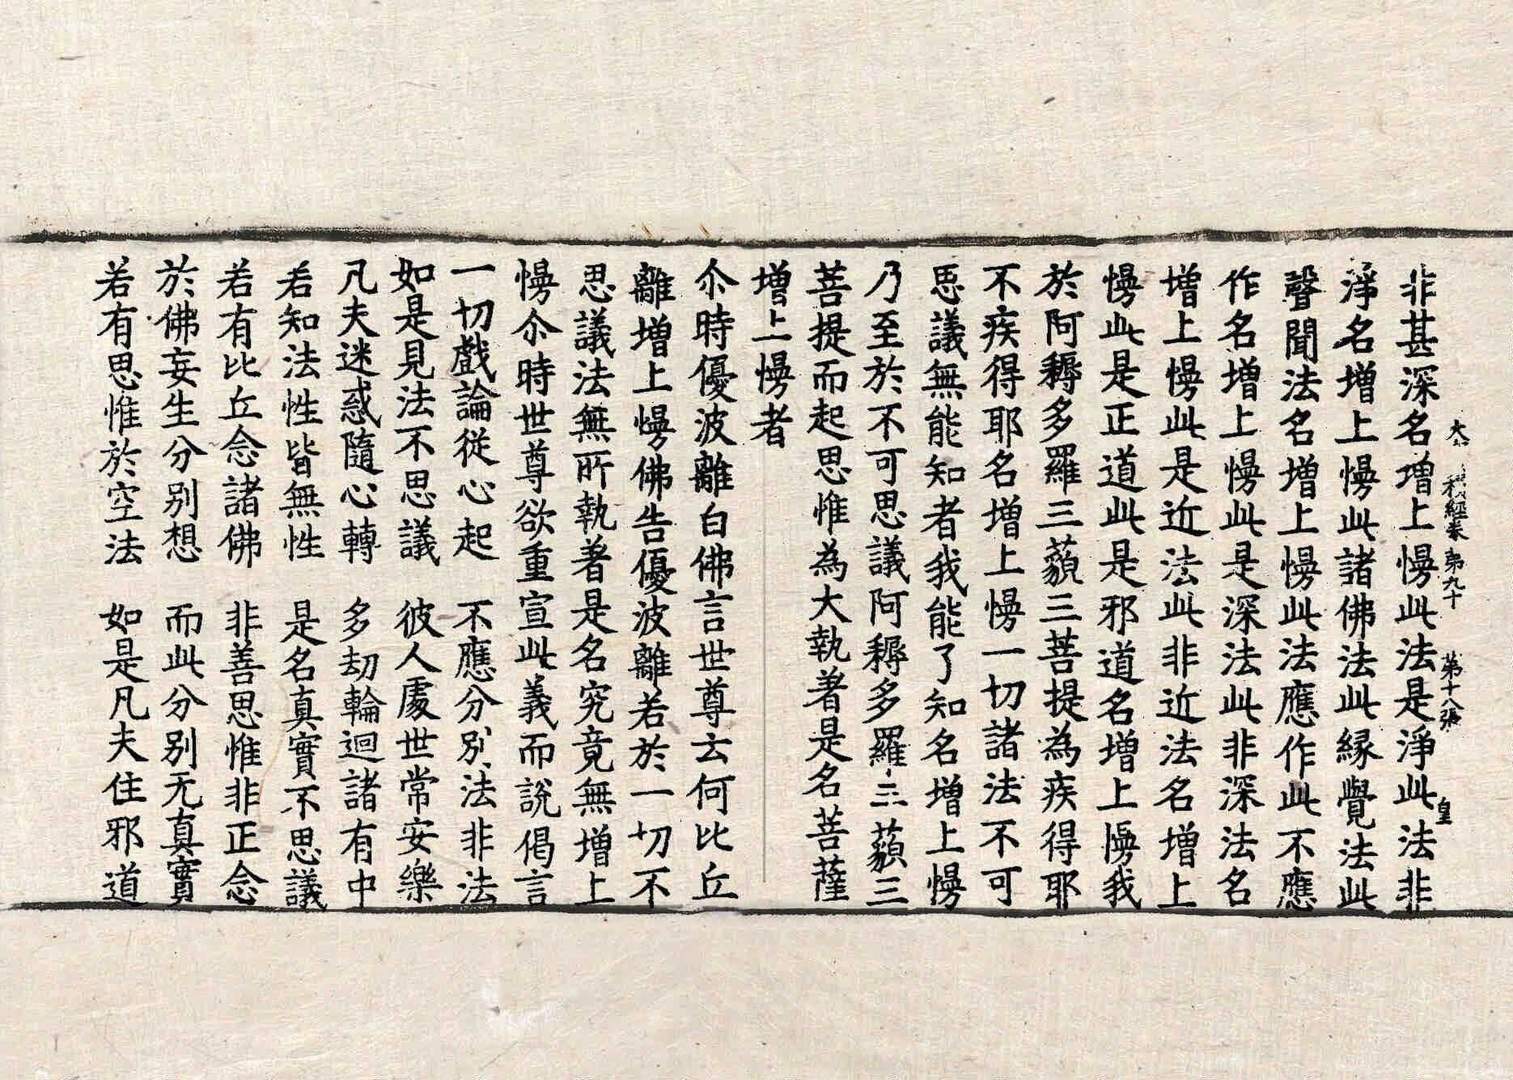 非甚深名增上慢此法是淨此法非
大 經卷第九十 第十八張 皇
淨名增上慢此諸佛法此緣覺法此
聲聞法名增上慢此法應作此不應
作名增上慢此是深法此非深法名
增上慢此是近法此非近法名增上
慢此是正道此是邪道名增上慢我
於阿耨多羅三藐三菩提為疾得耶
不疾得耶名增上慢一切諸法不可
思議無能知者我能了知名增上慢
乃至於不可思議阿耨多羅三藐三
菩提而起思惟為大執著是名菩薩
增上慢者
尒時優波離白佛言世尊云何比丘
離增上慢佛告優波離若於一切不
思議法無所執著是名究竟無增上
慢尒時世尊欲重宣此義而說偈言
一切戲論從心起 不應分別法非法
如是見法不思議 彼人處世常安樂
凡夫迷惑隨心轉 多劫輪迴諸有中
若知法性皆無性 是名真實不思議
若有比丘念諸佛 非善思惟非正念
於佛妄生分別想 而此分別无真實
若有思惟於空法 如是凡夫住邪道